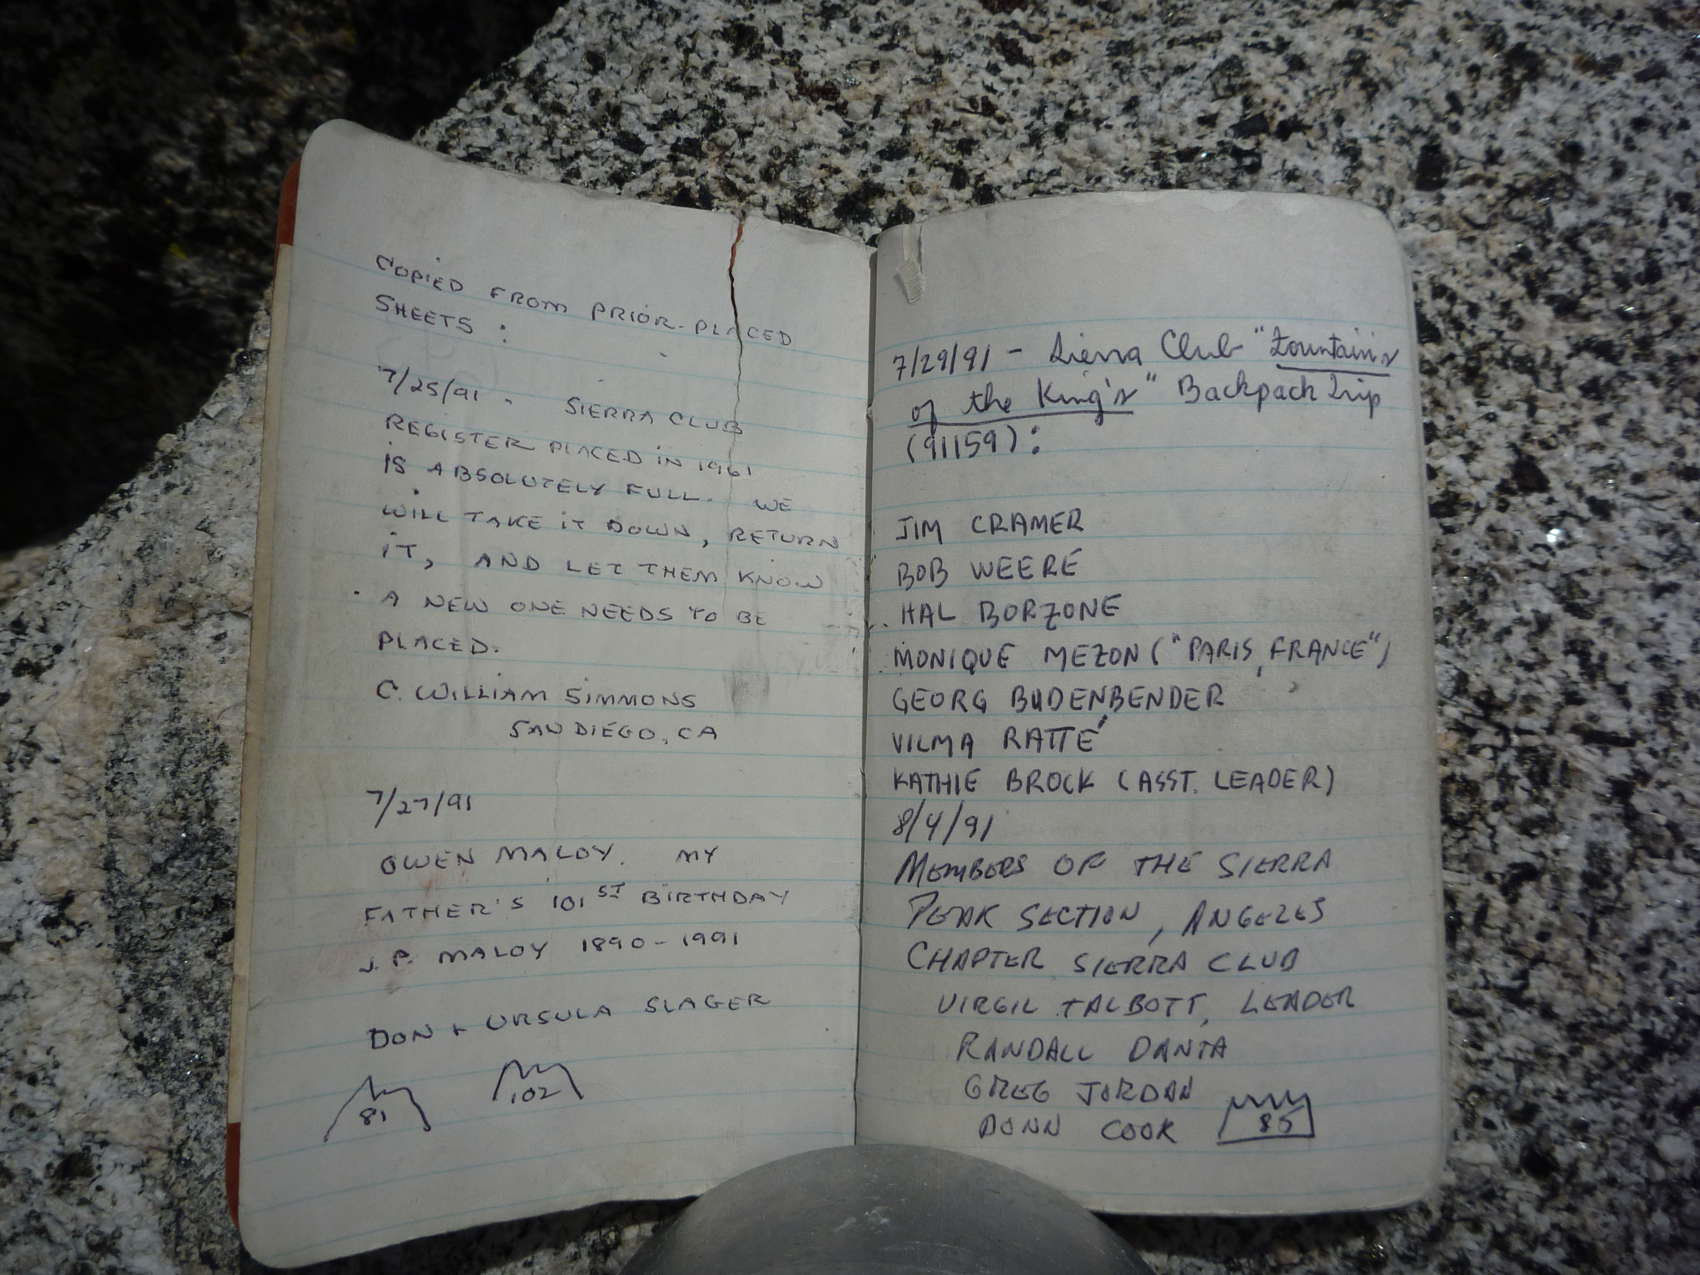 COPIED FROM PRIOR-PLACED
SHEETS :
7/25/91 - SIERRA CLUB
REGISTER PLACED IN 1961
IS ABSOLUTELY FULL. WE
WILL TAKE IT DOWN, RETURN
IT, AND LET THEM KNOW
A NEW ONE NEEDS TO BE
PLACED.
C. WILLIAM SIMMONS
SAN DIEGO, CA
7/27/91
OWEN MALOY. MY
FATHER'S 101ST BIRTHDAY
J.P. MALOY 1890-1991
DON + URSULA SLAGER
81
102
7/29/91 - Sierra Club "Fountain's
of the King's" Backpack Trip
(91159):
JIM CRAMER
BOB WEERE
HAL BORZONE
MONIQUE MEZON ("PARIS, FRANCE")
GEORG BUDENBENDER
VILMA RATTÉ
KATHIE BROCK (ASST. LEADER)
8/4/91
MEMBERS OF THE SIERRA
PEAK SECTION, ANGELES
CHAPTER SIERRA CLUB
VIRGIL TALBOTT, LEADER
RANDALL DANTA
GREG JORDAN
DONN COOK
85